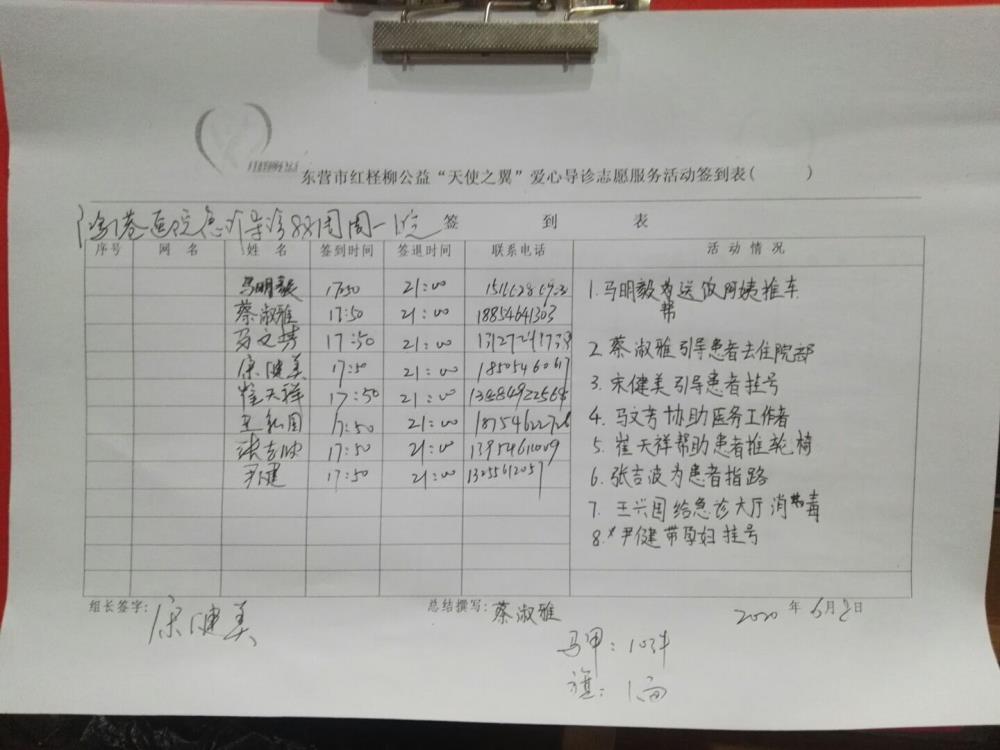 东营市红柽柳公益“天使之翼”爱心导诊志愿服务活动签到表( )
医院急诊导诊双周周一 签 到 表
序号 网 名 姓 名 签到时间 签退时间 联系电话 活 动 情 况
马明毅 17:50 21:00
蔡淑雅 17:50 21:00 18854641303
马文芳 17:50 21:00
宋健美 17:50 21:00
崔天祥 17:50 21:00
王兴国 17:50 21:00
张吉波 17:50 21:00
尹健 17:50 21:00
1.马明毅帮送饭阿姨推车
2.蔡淑雅引导患者去住院部
3.宋健美引导患者挂号
4.马文芳协助医务工作者
5.崔天祥帮助患者推轮椅
6.张吉波为患者指路
7.王兴国给急诊大厅消毒
8.尹健带孕妇挂号
组长签字: 宋健美 总结撰写: 蔡淑雅 2020 年 6月 日
马甲:10件
旗:1面